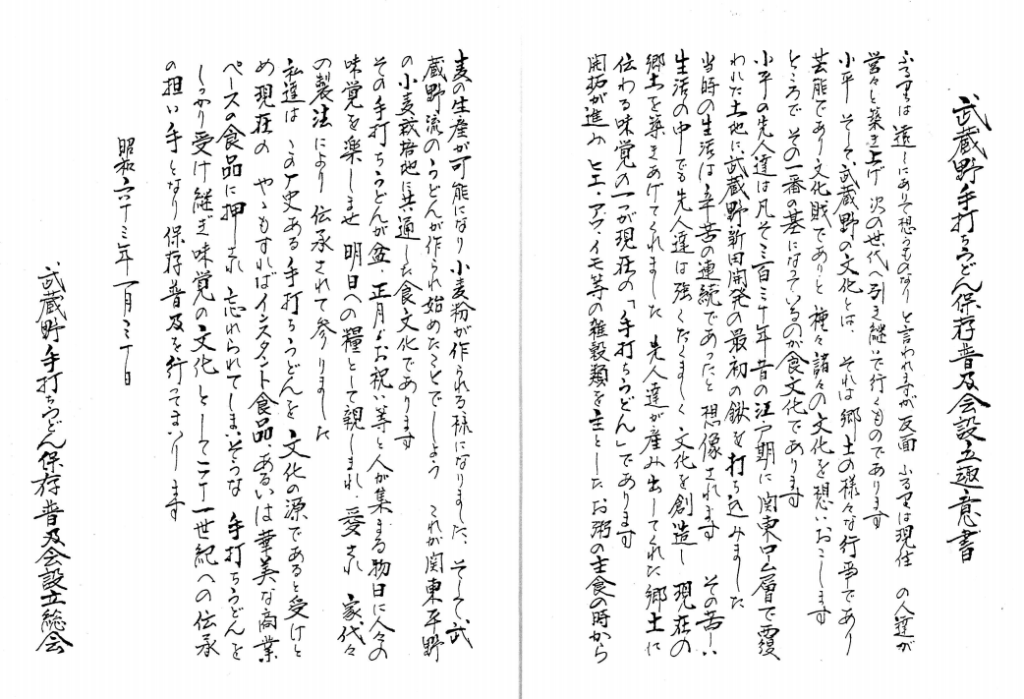 武蔵野手打ちうどん保存普及会設立趣意書
ふるさとは遠くにありて想うものなり と言われますが反面 ふる里は現住 の人達が
営々と築き上げ 次の世代へ引き継いで行くものであります
小平 そして武蔵野の文化とは、 それは郷土の様々な行事であり
芸能であり文化財でありと 種々諸々の文化を想いおこします
ところで その一番の基になっているのが食文化であります
小平の先人達は凡そ三百三十年昔の江戸期に関東ローム層で覆
われた土地に武蔵野新田開発の最初の鍬を打ち込みました
当時の生活は辛苦の連続であったと 想像されます その苦しい
生活の中でも先人達は強くたくましく 文化を創造し 現在の
郷土を築きあげてくれました 先人達が産み出してくれた郷土に
伝わる味覚の一つが現在の「手打ちうどん」であります
開拓が進み ヒエ・アワ・イモ等の雑穀類を主としたお粥の主食の時から
麦の生産が可能になり小麦粉が作られる様になりました、そして武
蔵野流のうどんが作られ始めたことでしょう これが関東平野
の小麦栽培地に共通した食文化であります
その手打ちうどんが盆、正月、お祝い等と人が集まる物日に人々の
味覚を楽しませ 明日への糧として親しまれ、愛され 家代々
の製法により 伝承されて参りました
私達は この歴史ある手打ちうどんを 文化の源であると受けと
め現在の やゝもすればインスタント食品、あるいは華美な商業
ペースの食品に押され 忘れられてしまいそうな 手打ちうどんを
しっかり受け継ぎ味覚の文化として二十一世紀への伝承
の担い手となり保存普及を行ってまいります
昭和六十三年一月三十日
武蔵野手打ちうどん保存普及会設立総会